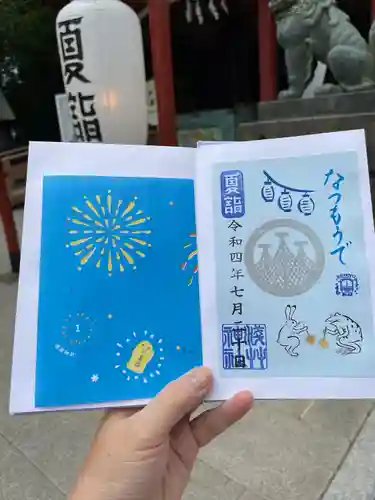 夏詣
夏詣
なつもうで
令和四年七月
浅草
神社